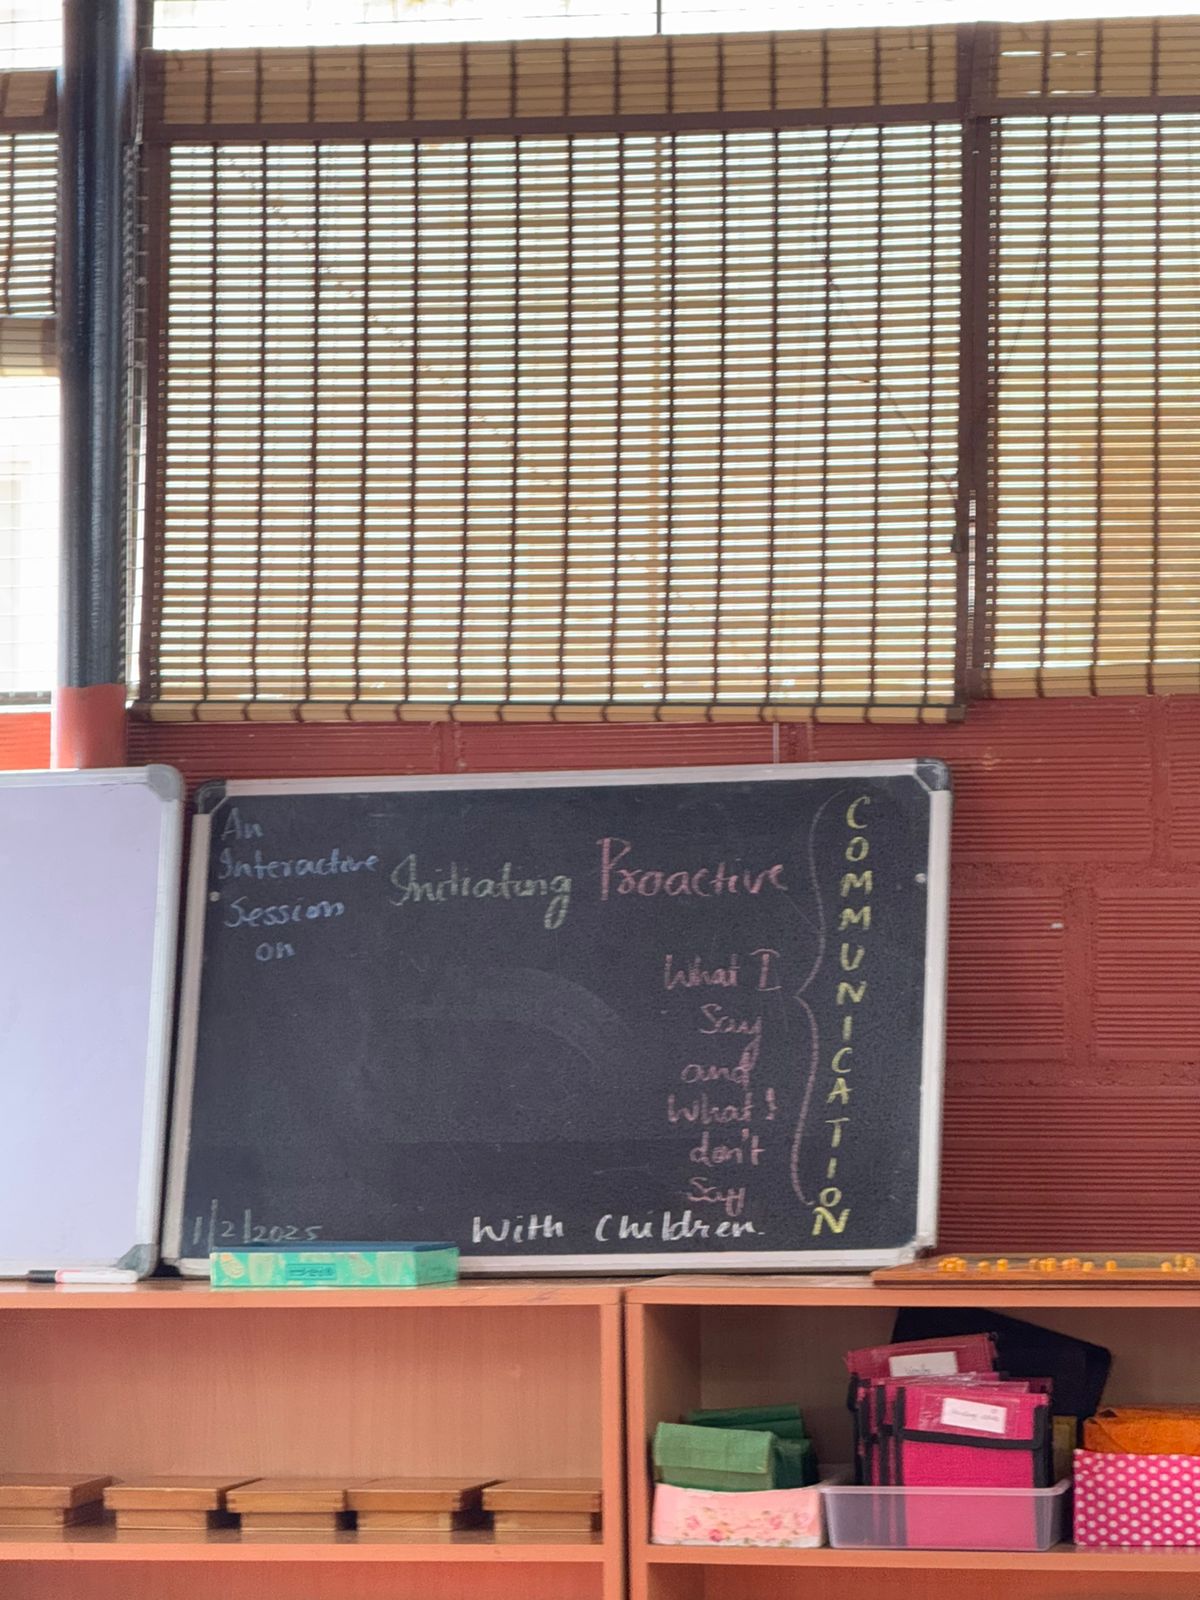 An
Interactive
Session
on
Initiating Proactive
COMMUNICATION
What I
Say
and
What I
don't
Say
With Children.
1/2/2025